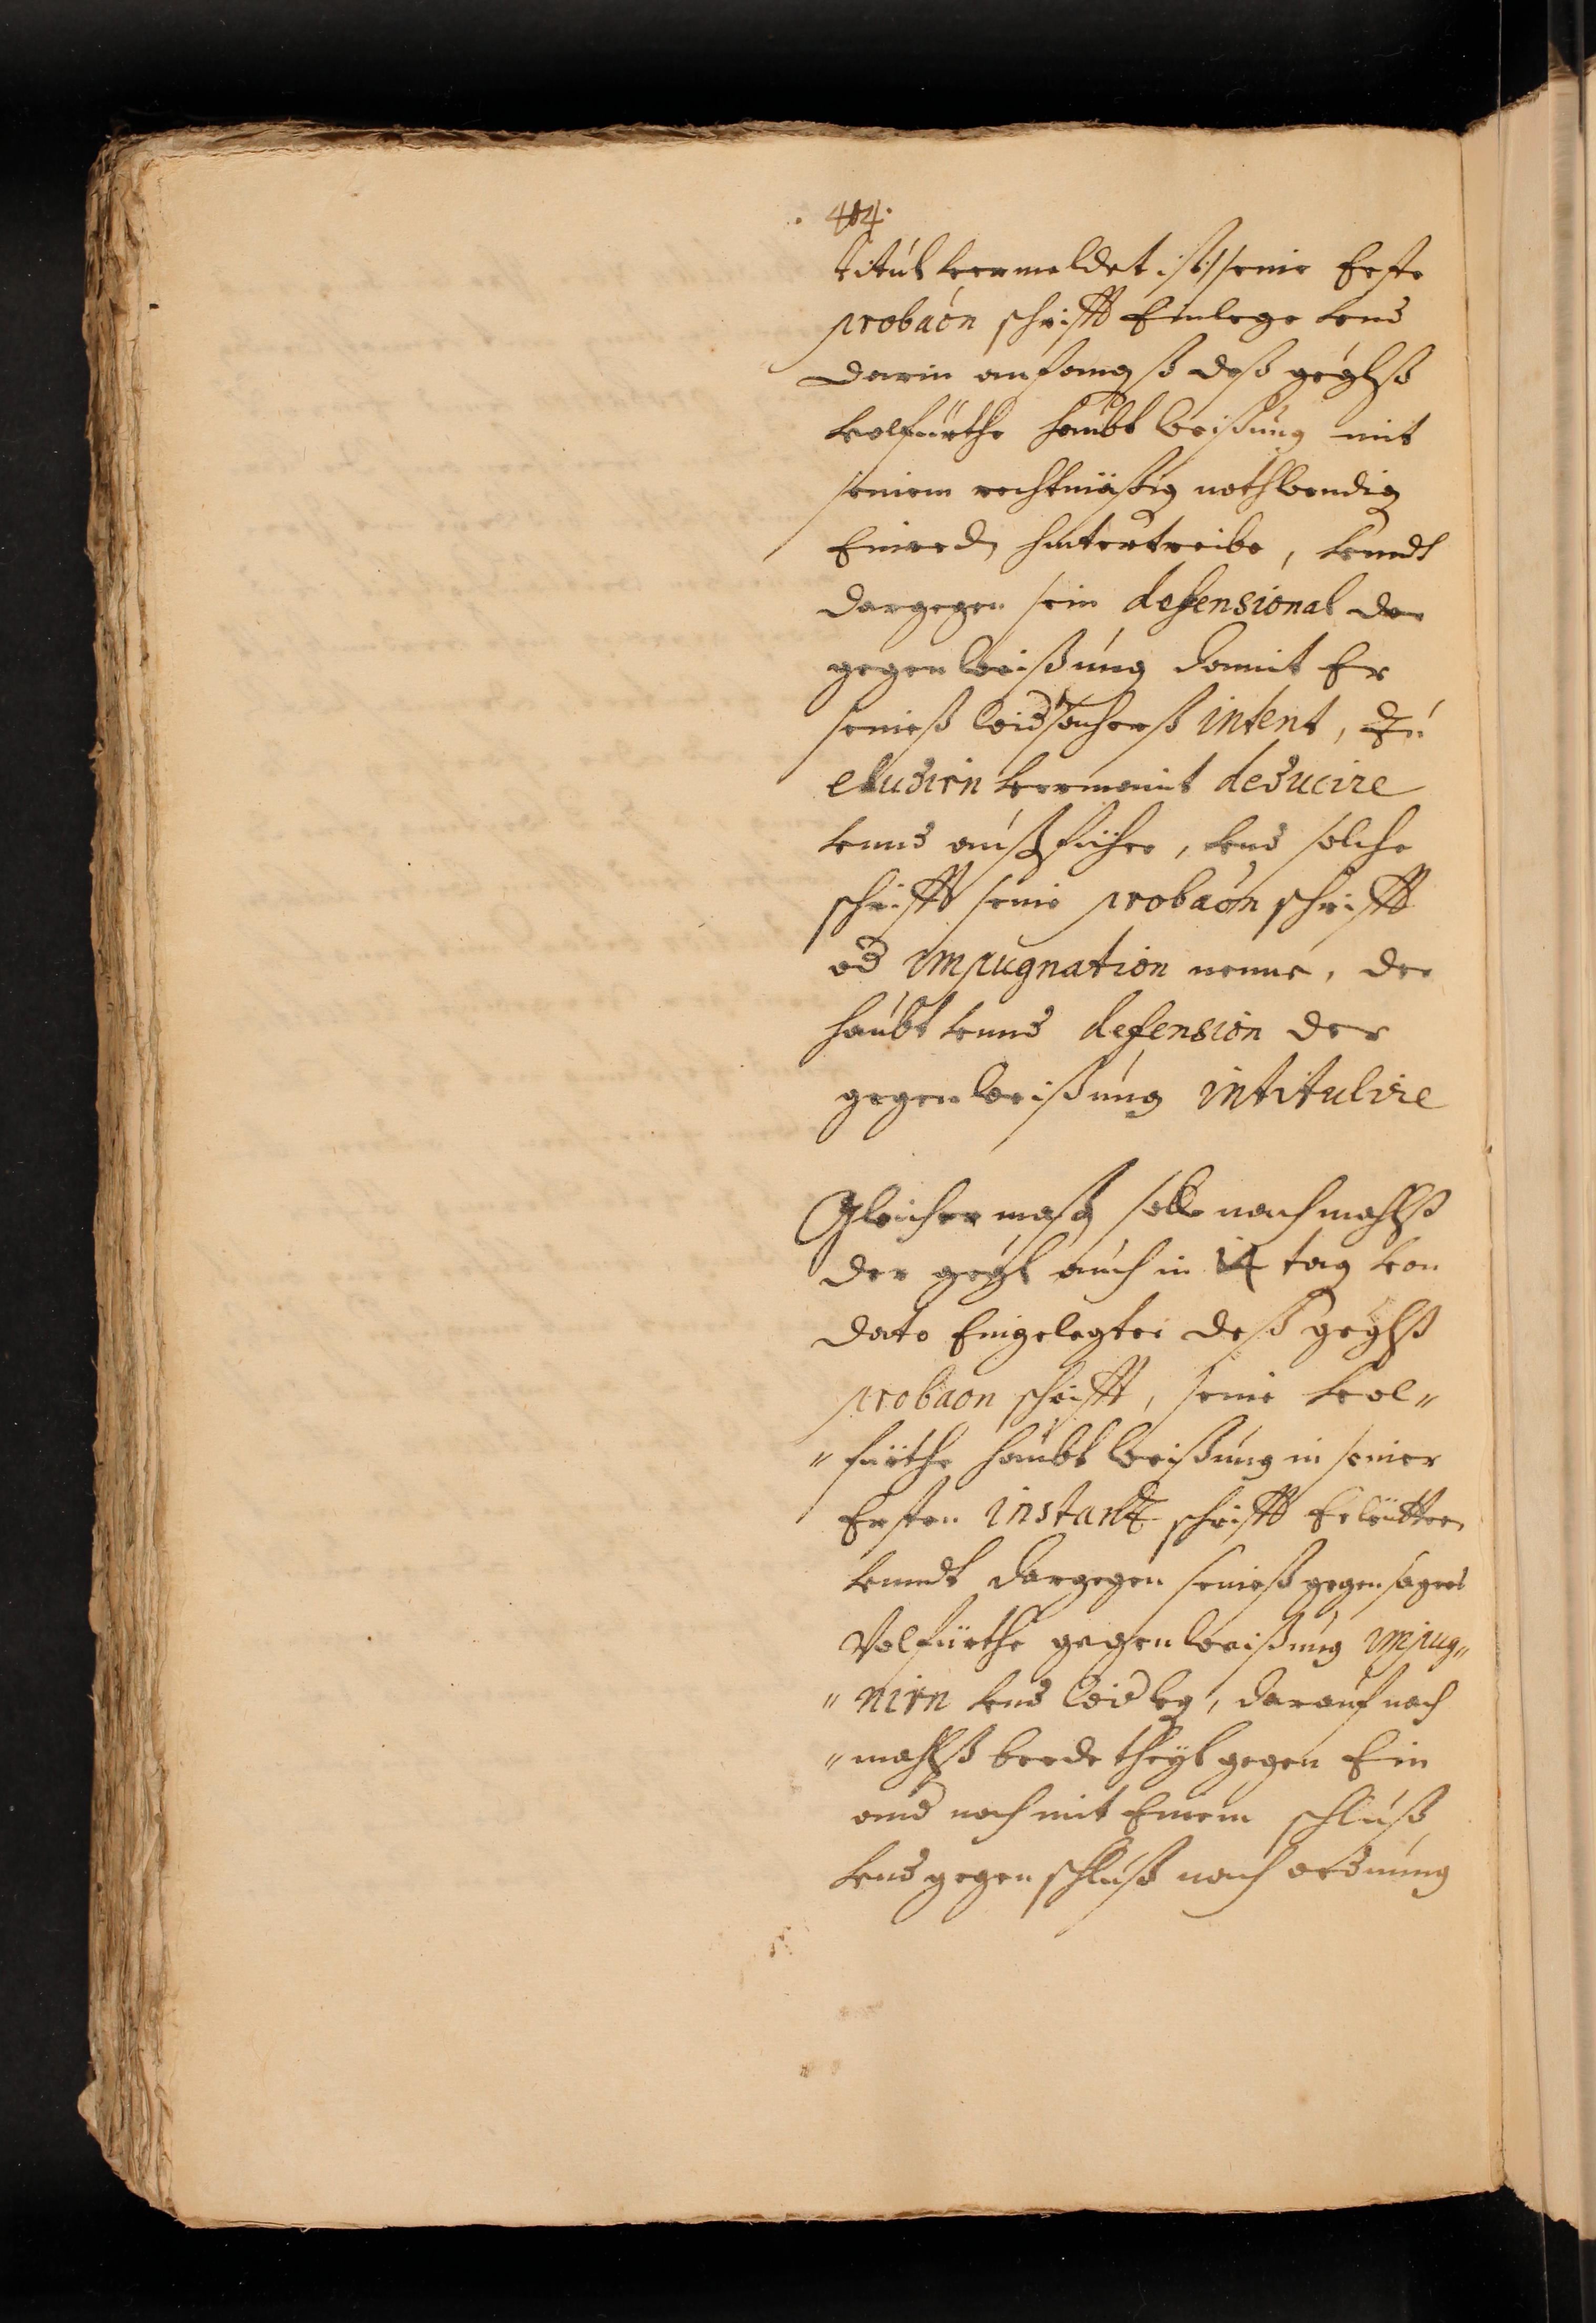 404.
titul vermeldet ist:/ seine Erste
probaôn schrifft Einlege vnd
darin anfangß deß geghß
volfürthe haubt weißung mit
seinem rechtmäßig nothwendig
Einred hintertreibe, vnndt
dargegen sein defensional der
gegenweißung damit Er
seineß widsacherß intent, zu
eludirn vermaint deducire
vnnd außführe, vnd solche
schrifft seine probaôn schrifft
od impugnation nenne, der
haubt vnnd defension der
gegenweißung intitulire
Gleichermaß solle nachmahlß
der gegl auch in 14 tag von
dato Eingelegter deß geghß
probaon schrifft, seine vol„
„ fürthe haubt weißung in seiner
Ersten instantz schrifft Erleütter
vnndt dargegen seineß gegensagers
Volfürthe gegenweißung impug„
„ nirn vnd widleg, darauf nach
„ mahlß beede theyl gegen Ein
and noch mit Einem schluß
vnd gegenschluß nach ordnung